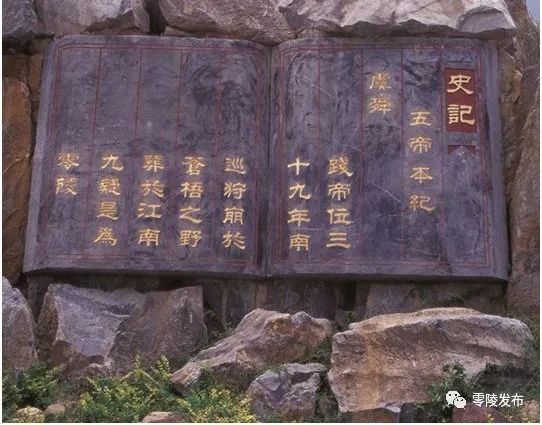 史記
五帝本紀
虞舜
踐帝位三
十九年南
巡狩崩於
蒼梧之野
葬於江南
九疑是為
零陵
零陵发布